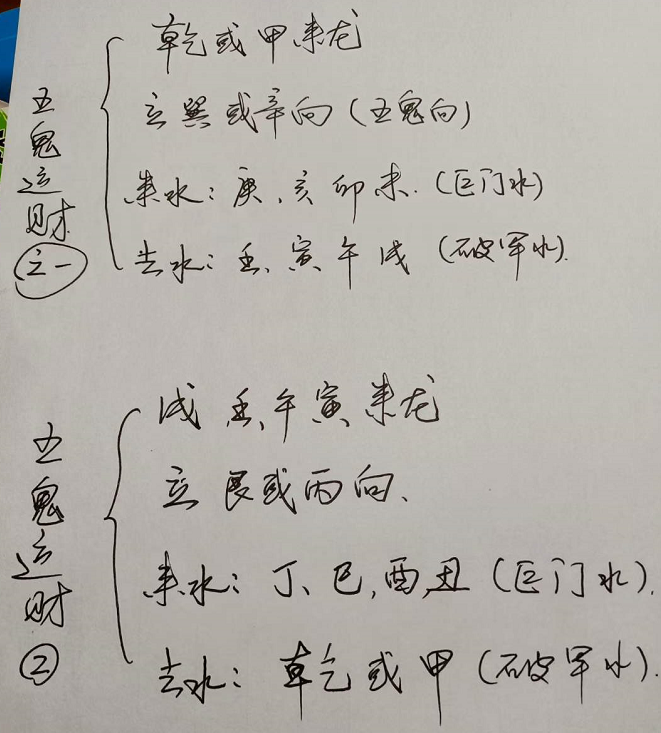 五鬼运财
之一
乾或甲来龙
立巽或辛向(五鬼向)
来水:庚、亥卯未.(巨门水)
去水:壬、寅午戌(破军水).
五鬼运财
②
戌壬、午寅来龙
立艮或丙向、
来水:丁、巳,酉,丑(巨门水).
去水:乾或甲(破军水).